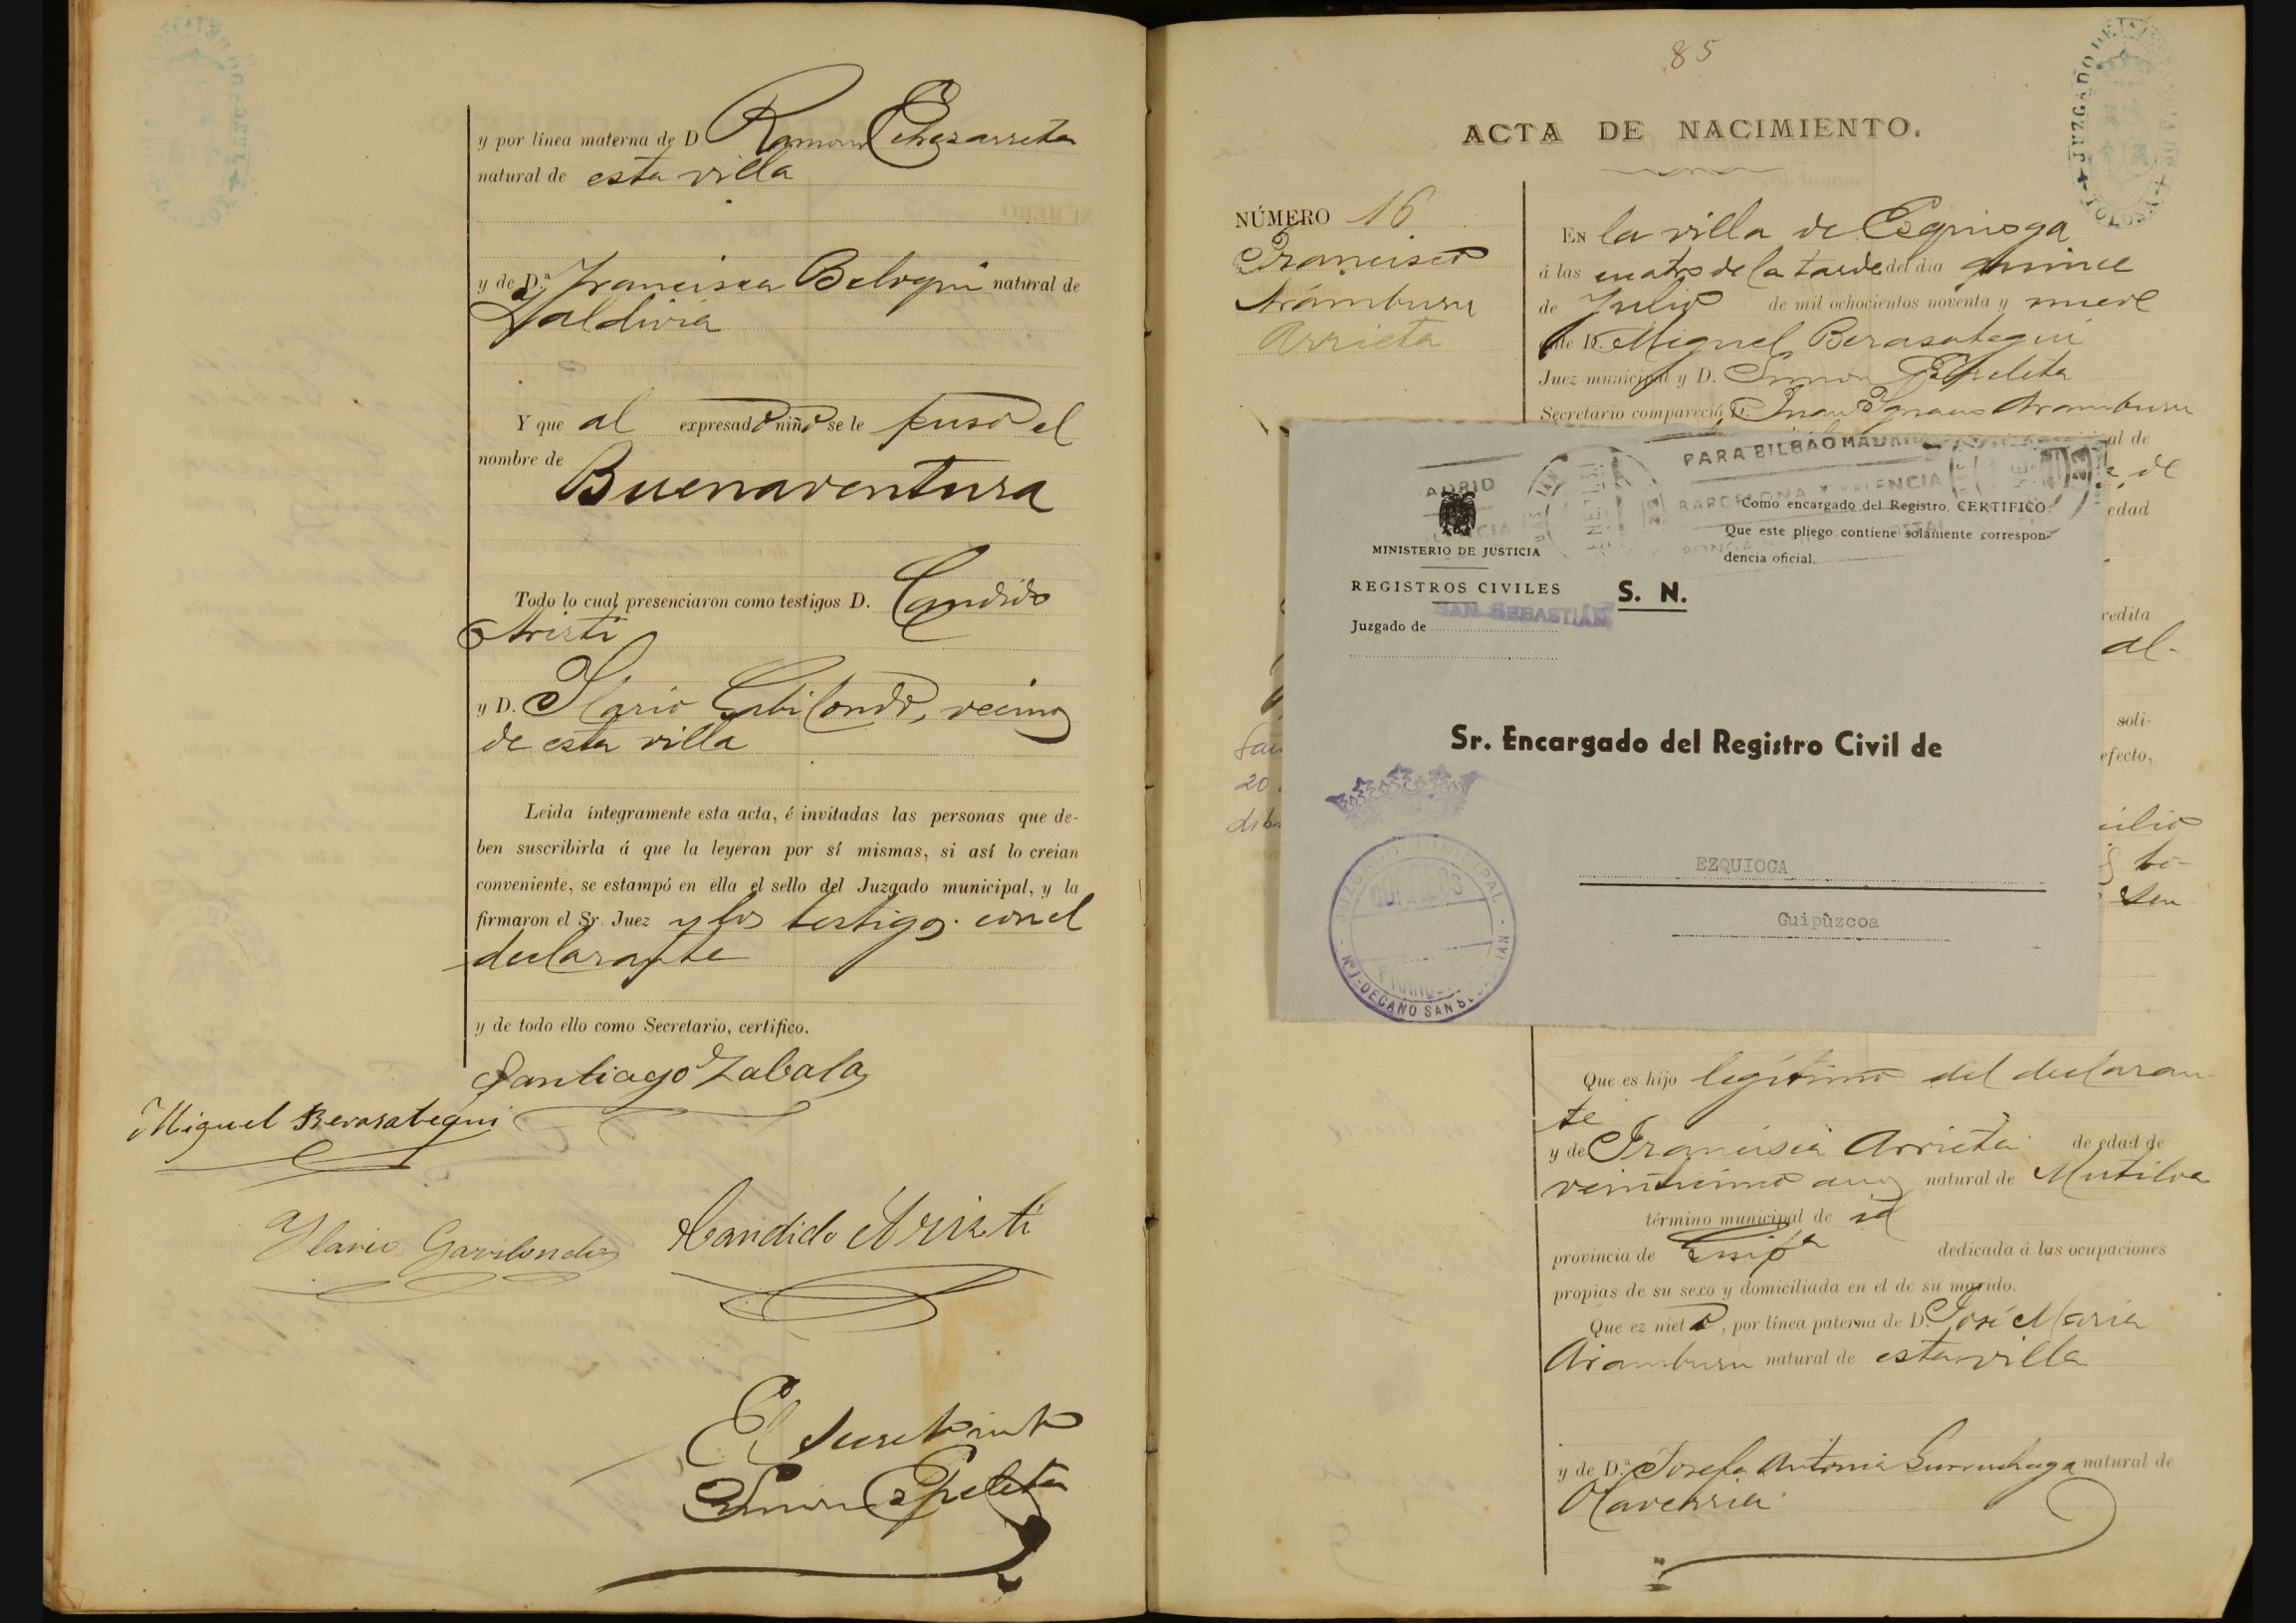 y por línea materna de D. Ramon Echezarreta
natural de esta villa
y de D.ª Francisca Beloqui natural de
Zaldivia
Y que al expresado niño se le puso el
nombre de
Buenaventura
Todo lo cual presenciaron como testigos D. Candido
Aristi
y D. Ilario Gabilondo, vecinos
de esta villa
Leida íntegramente esta acta, é invitadas las personas que de-
ben suscribirla á que la leyeran por sí mismas, si así lo creian
conveniente, se estampó en ella el sello del Juzgado municipal, y la
firmaron el Sr. Juez y los testigos con el
declarante
y de todo ello como Secretario, certifico.
Santiago Zabala
Miguel Berasategui
Ilario Gavilondo Candido Aristi
El Secretario
Simon Ezpeleta
85
ACTA DE NACIMIENTO.
NÚMERO 16
Francisco
Aramburu
Arrieta
En la villa de Ezquioga
á las cuatro de la tarde del dia quince
de Julio de mil ochocientos noventa y nueve
ante D. Miguel Berasategui
Juez municipal y D. Simon Ezpeleta
Secretario compareció D. Juan Ygnacio Aramburu
al de
de
edad
redita
al-
soli-
efecto,
20
PARA BILBAO MADRID
BARCELONA Y VALENCIA
MINISTERIO DE JUSTICIA
REGISTROS CIVILES
S. N.
Juzgado de SAN SEBASTIAN
Como encargado del Registro, CERTIFICO:
Que este pliego contiene solamente correspon-
dencia oficial.
Sr. Encargado del Registro Civil de
EZQUIOGA
Guipùzcoa
JUZGADO MUNICIPAL
Nº 1-DECANO SAN SEBASTIAN
Que es hijo legítimo del declaran-
te
y de Francisca Arrieta de edad de
veinticinco años natural de Mutiloa
término municipal de id
provincia de Guip.ª dedicada á las ocupaciones
propias de su sexo y domiciliada en el de su marido.
Que ez nieto, por línea paterna de D. José Maria
Aramburu natural de esta villa
y de D.ª Josefa Antonia Gurruchaga natural de
Olaverria